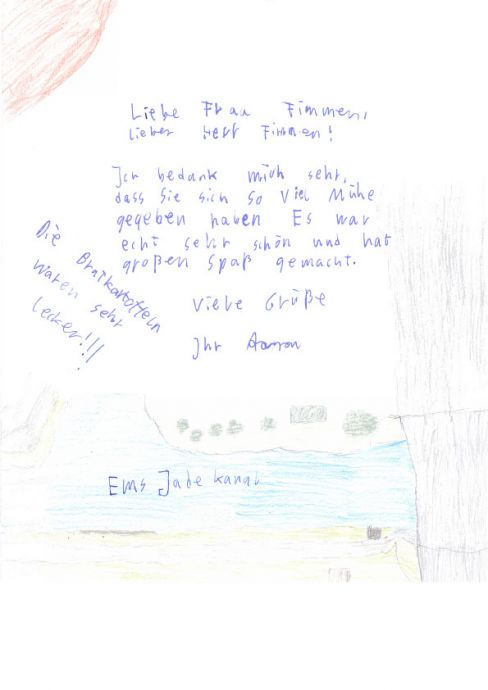 Liebe Frau Fimmen,
Lieber Herr Fimmen!
Ich bedank mich sehr,
dass Sie sich so viel Mühe
gegeben haben Es war
echt sehr schön und hat
großen Spaß gemacht.
Viele Grüße
Ihr Aaron
Die Bratkartoffeln
waren sehr
lecker!!!
Ems Jade kanal